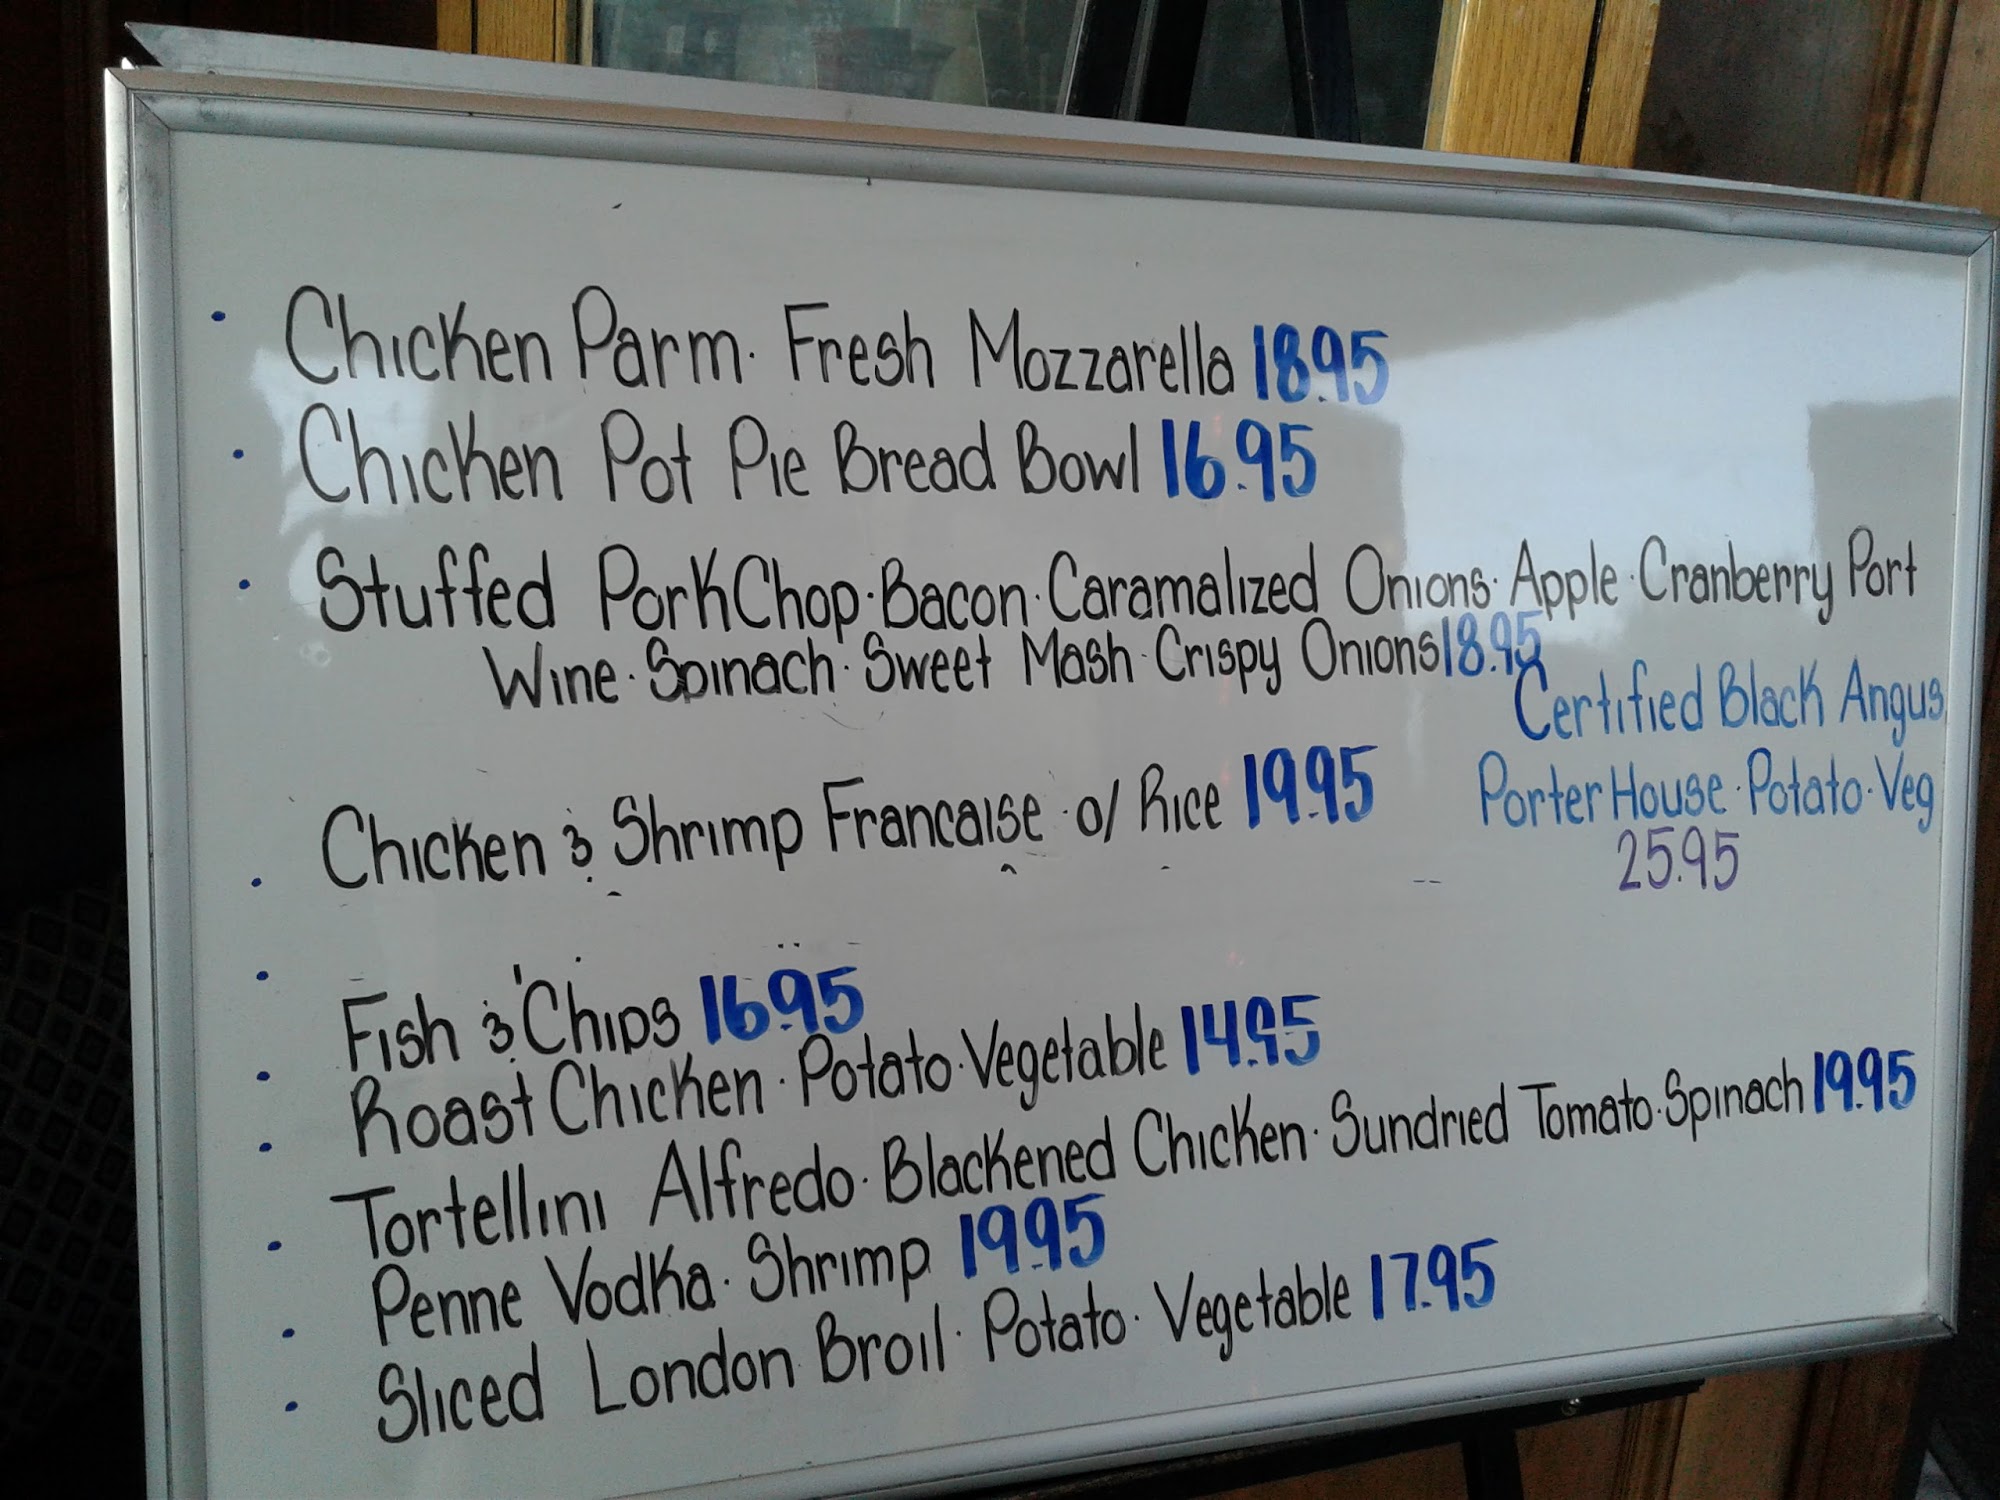 · Chicken Parm · Fresh Mozzarella 18.95
· Chicken Pot Pie Bread Bowl 16.95
· Stuffed PorkChop · Bacon · Caramalized Onions · Apple · Cranberry Port
Wine · Spinach · Sweet Mash · Crispy Onions 18.95
Certified Black Angus
PorterHouse · Potato · Veg
25.95
· Chicken & Shrimp Francaise o/ Rice 19.95
· Fish & Chips 16.95
· Roast Chicken · Potato · Vegetable 14.95
· Tortellini Alfredo · Blackened Chicken · Sundried Tomato · Spinach 19.95
· Penne Vodka · Shrimp 19.95
· Sliced London Broil · Potato · Vegetable 17.95